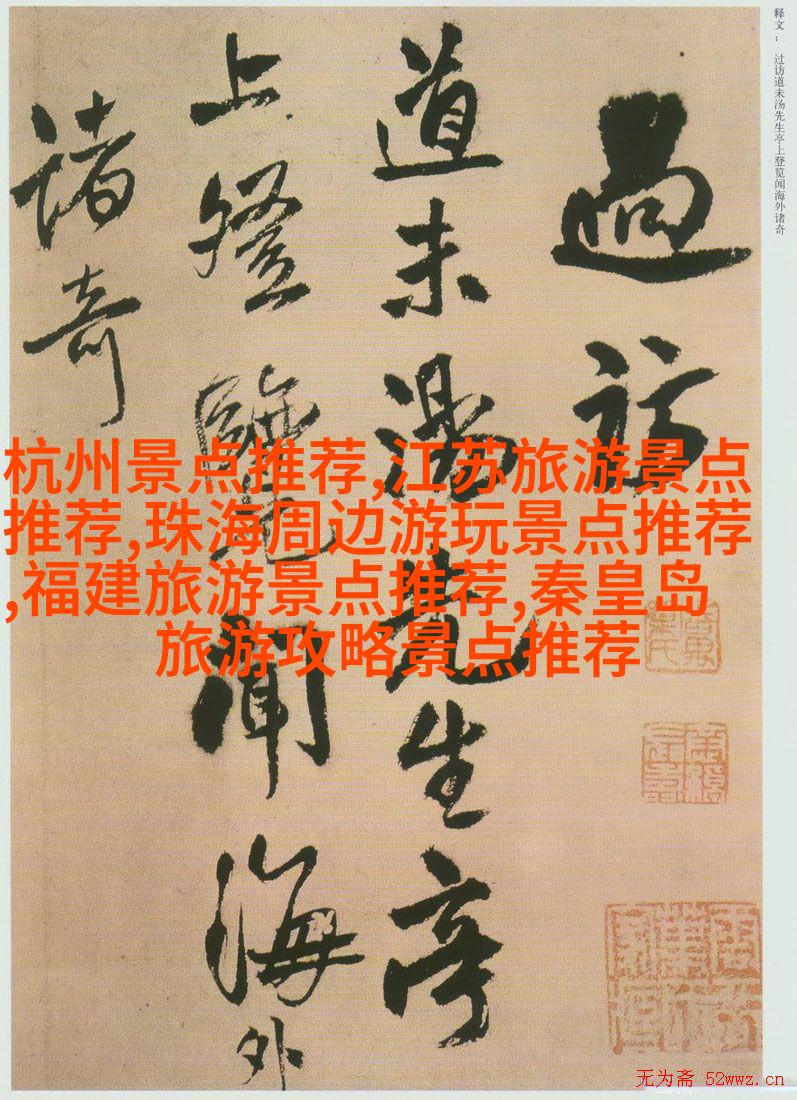 释文： 过访道未汤先生亭上登览闻海外诸奇
過訪
道未湯先生亭
上登覽聞海外
諸奇
杭州景点推荐,江苏旅游景点
推荐,珠海周边游玩景点推荐
,福建旅游景点推荐,秦皇岛
旅游攻略景点推荐
无为斋 52wwz.cn